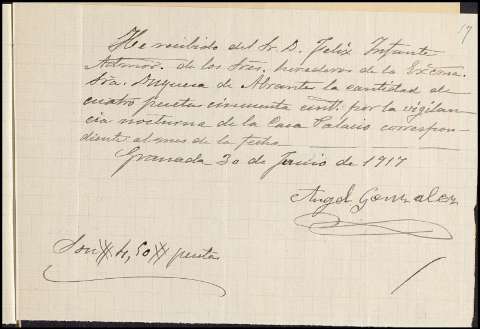 17
He recibido del Sr. D. Felix Infante
Admor. de los Sres. herederos de la Excma.
Sra. Duquesa de Abrantes la cantidad de
cuatro pesetas cincuenta cent. por la vigilan-
cia nocturna de la Casa Palacio correspon-
diente al mes de la fecha
Granada 30 de Junio de 1917
Angel Gonzalez
Son 4,50 pesetas